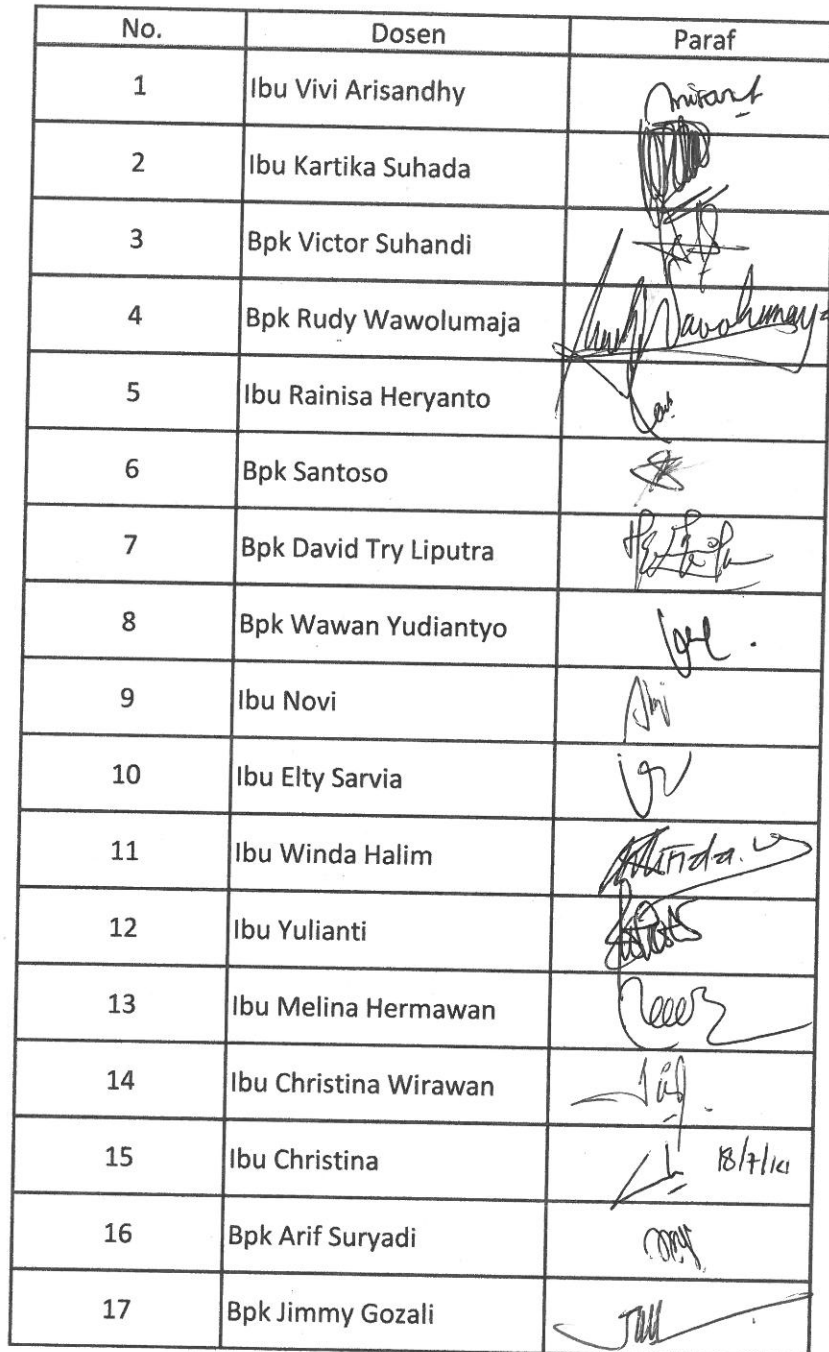 No. Dosen Paraf
1 Ibu Vivi Arisandhy
2 Ibu Kartika Suhada
3 Bpk Victor Suhandi
4 Bpk Rudy Wawolumaja
5 Ibu Rainisa Heryanto
6 Bpk Santoso
7 Bpk David Try Liputra
8 Bpk Wawan Yudiantyo
9 Ibu Novi
10 Ibu Elty Sarvia
11 Ibu Winda Halim
12 Ibu Yulianti
13 Ibu Melina Hermawan
14 Ibu Christina Wirawan
15 Ibu Christina
16 Bpk Arif Suryadi
17 Bpk Jimmy Gozali